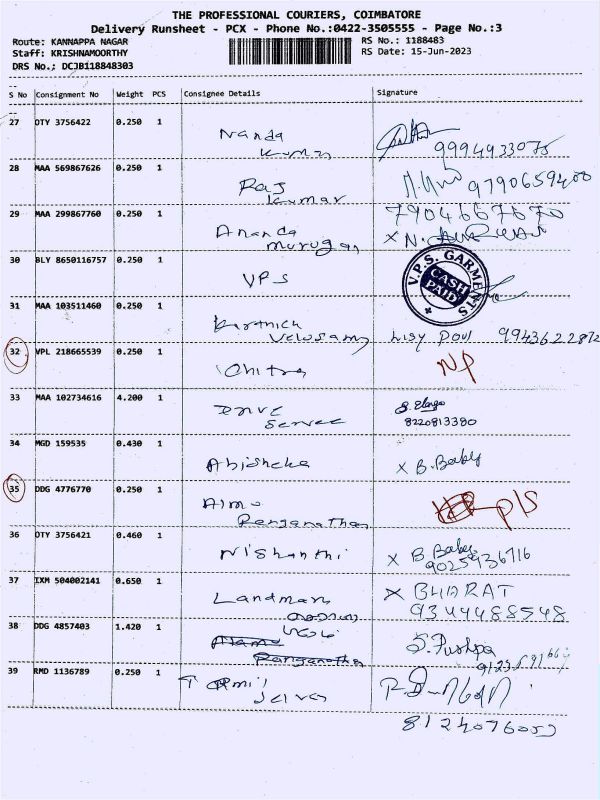 THE PROFESSIONAL COURIERS, COIMBATORE
Delivery Runsheet - PCX - Phone No.:0422-3505555 - Page No.:3
Route: KANNAPPA NAGAR RS No.: 1188483
Staff: KRISHNAMOORTHY RS Date: 15-Jun-2023
DRS No.; DCJB118848303
S No Consignment No Weight PCS Consignee Details Signature
27 OTY 3756422 0.250 1 Nanda
Kumar 9994933075
28 MAA 569867626 0.250 1 Raj
Kumar 9790659400
29 MAA 299867760 0.250 1 Ananda 7904667670
Murugan X N.
30 BLY 8650116757 0.250 1 VPS V.P.S. GARMENTS
CASH
PAID
31 MAA 103511460 0.250 1 Karthick
Velusamy Lisy Poul 9943622872
32 VPL 218665539 0.250 1 Chitra NP
33 MAA 102734616 4.200 1 Drve
Service 8220813380
34 MGD 159535 0.430 1 Abisheka X B. Baby
35 DDG 4776770 0.250 1
Ranganathan P/S
36 OTY 3756421 0.460 1 Nishanthi X B. Baby
9025936716
37 IXM 504002141 0.650 1 Landmark X BHARAT
9344488548
38 DDG 4857403 1.420 1 S. Pushpa
39 RMD 1136789 0.250 1 Tamil
Selvan
8124076053